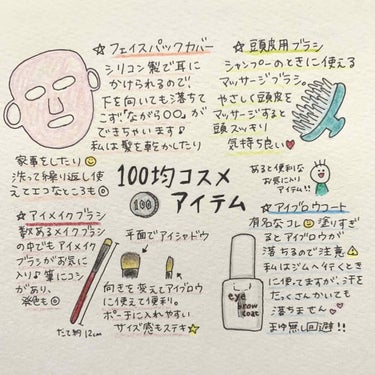 ☆フェイスパックカバー
シリコン製で耳に
かけられるので、
下を向いても落ちて
こず、ながら〇〇♪が
できちゃいます♪
私は髪を乾かしたり
家事をしたり
洗って繰り返し使
えてエコなところも◎
☆頭皮用ブラシ
シャンプーのときに使える
マッサージブラシ。
やさしく頭皮を
マッサージすると
頭スッキリ
気持ち良い
100均コスメ
アイテム
100
あると便利な
お気に入り
アイテム!!
☆アイメイクブラシ
数あるメイクブラシ
の中でもアイメイク
ブラシがお気に
入り♪筆にコシ
があり、
発色も◎
たて約12cm
平面でアイシャドウ
向きを変えてアイブロウ
に使えて便利。
ポーチに入れやすい
サイズ感もステキ
☆アイブロウコート
有名なコレ 塗りすぎ
るとアイブロウが
落ちるので注意
私はジムへ行くとき
に使ってますが、汗を
たっくさんかいても
落ちません
まゆ無し回避!!
eye
brow
coat